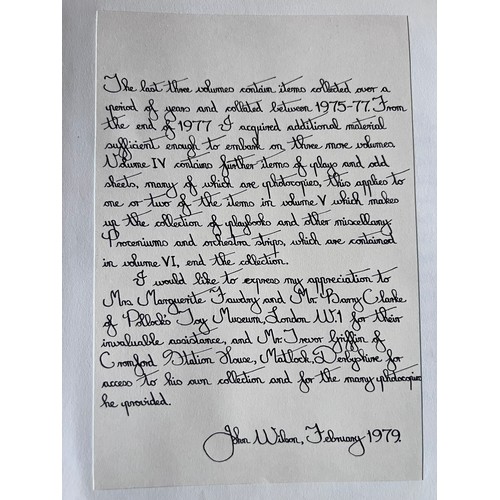 The last three volumes contain items collected over a
period of years and collated between 1975-77. From
the end of 1977 I acquired additional material
sufficient enough to embark on three more volumes.
Volume IV contains further items of plays and odd
sheets, many of which are photocopies, this applies to
one or two of the items in volume V which makes
up the collection of playbooks and other miscellany.
Prosceniums and orchestra strips, which are contained
in volume VI, end the collection.
I would like to express my appreciation to
Mrs Marguerite Fawdry and Mr. Barry Clarke
of Pollock's Toy Museum, London W1 for their
invaluable assistance, and Mr. Trevor Griffin of
Cromford Station House, Matlock, Derbyshire for
access to his own collection and for the many photocopies
he provided.
John Wilson, February 1979.